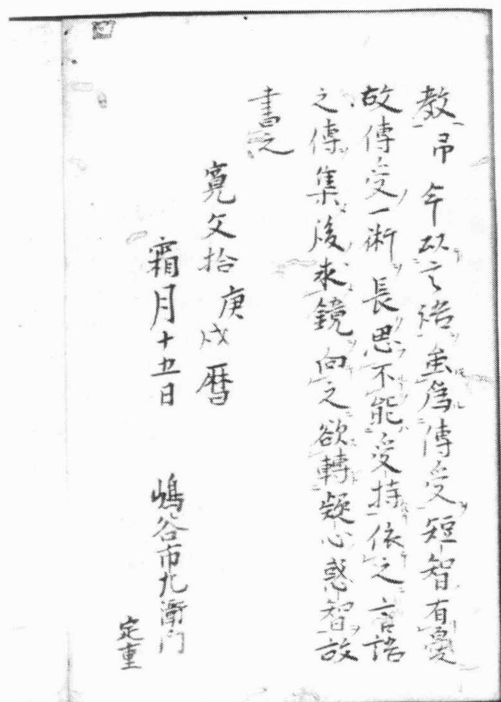 教帀今以言語虽爲傳受短智有憂
故傳受一術長思不能受持依之言語
之傳集後求鏡向之欲轉疑心惑智故
書之
寛文拾庚戌暦
霜月十五日 嶋谷市九衛門
定重